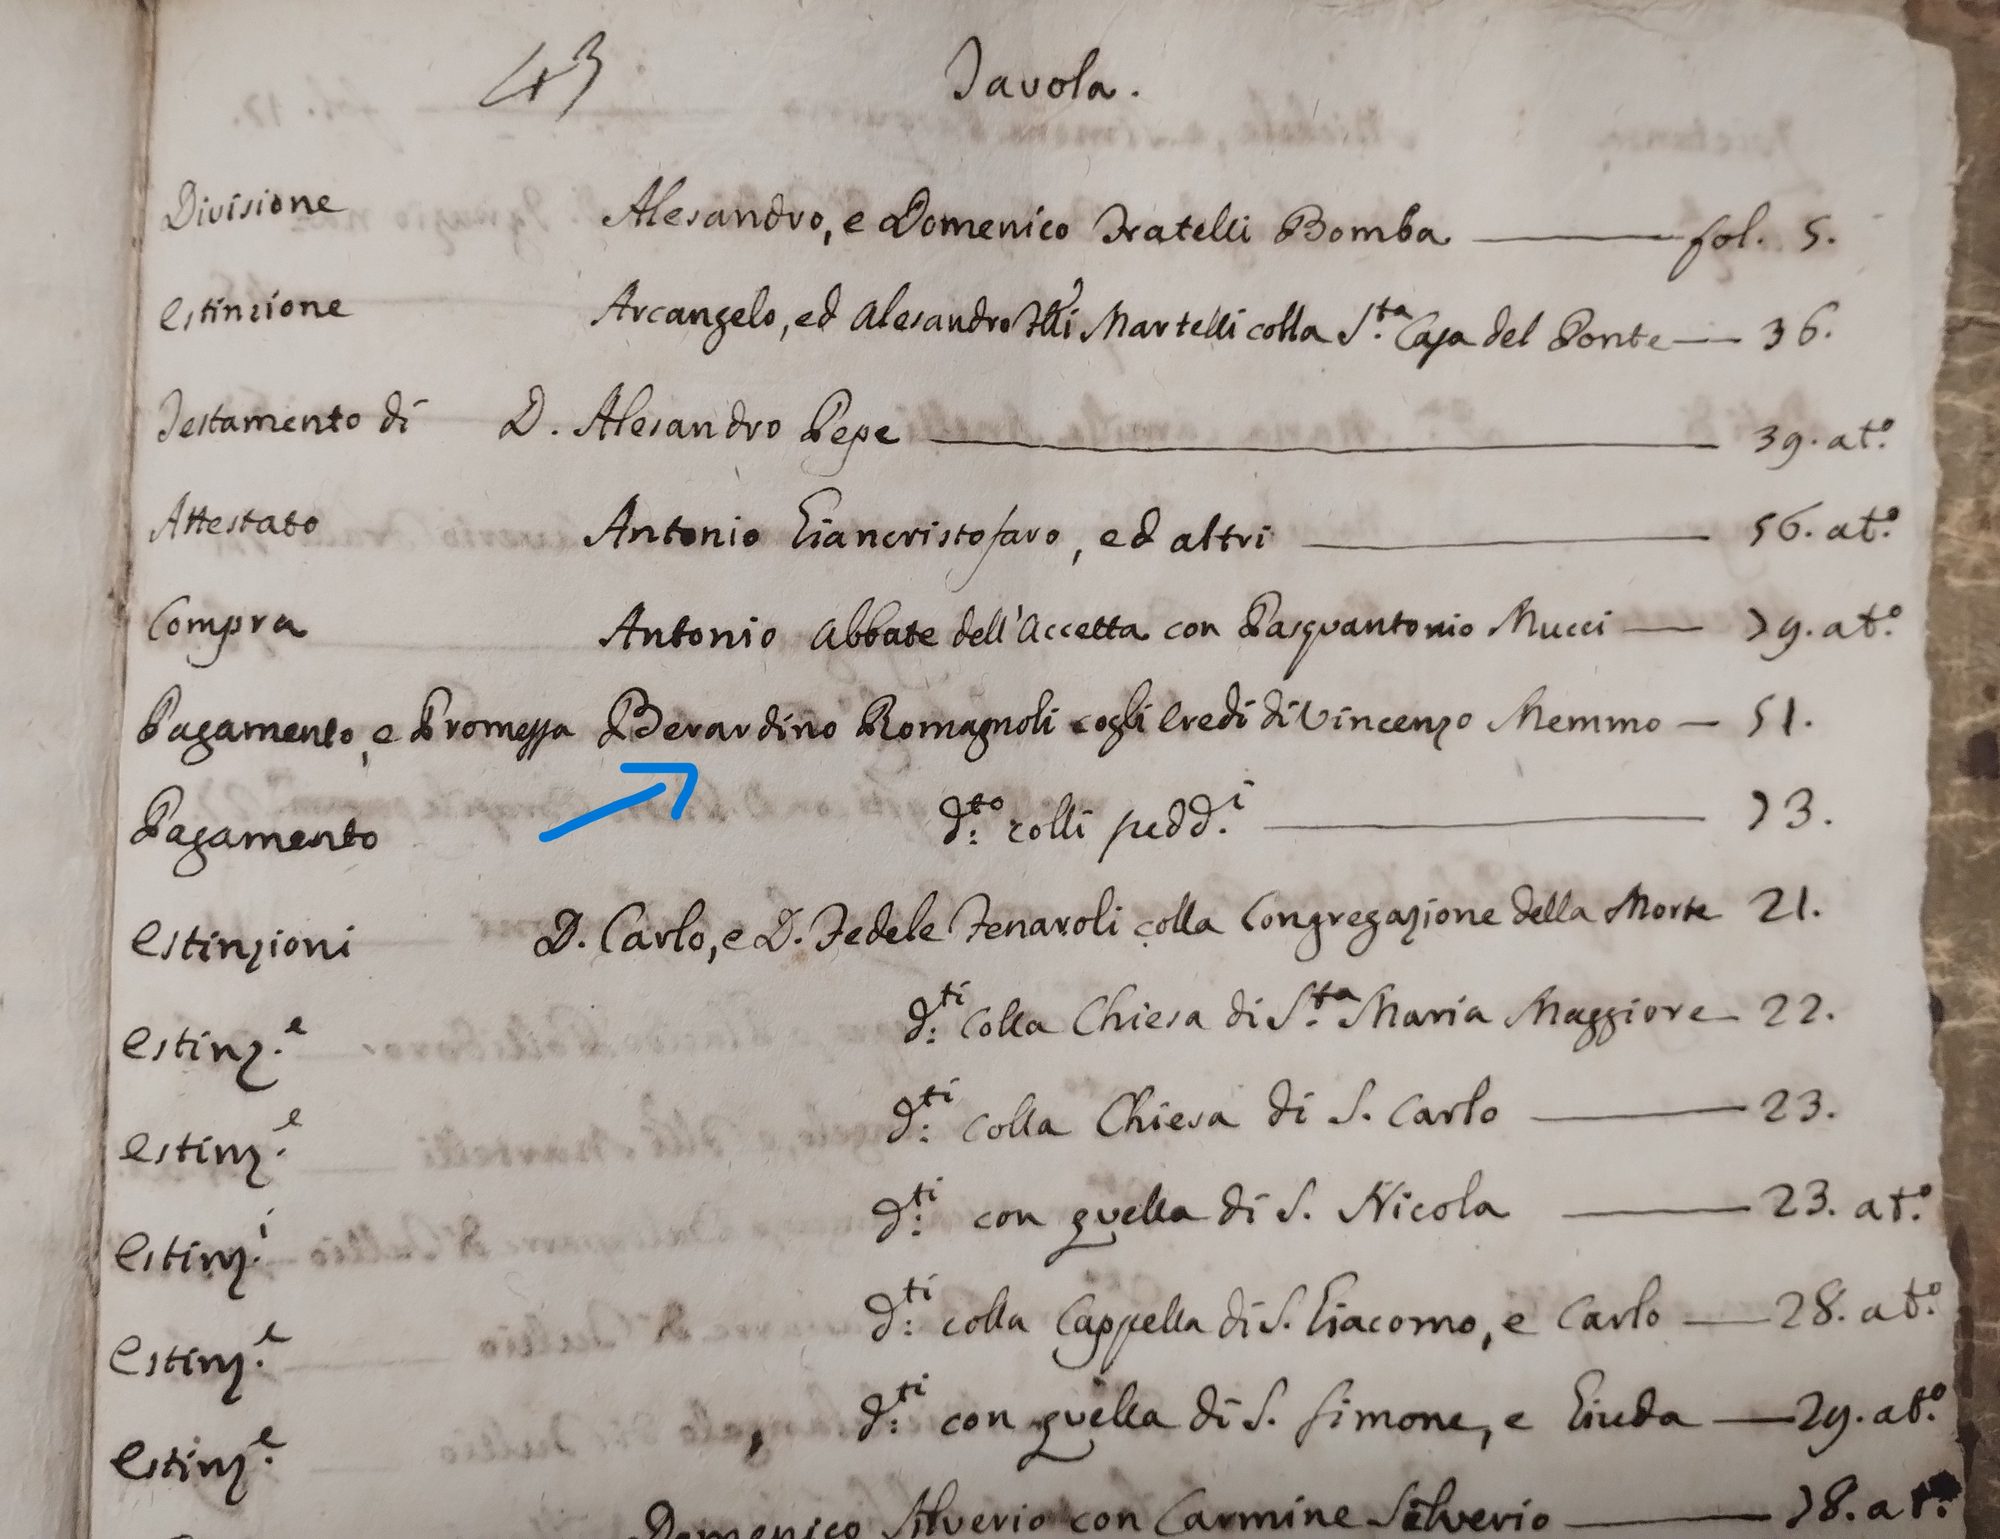 43 Tavola.
Divisione Alesandro, e Domenico Fratelli Bomba fol. 5.
Estinzione Arcangelo, ed Alesandro Flli Martelli colla S.ta Casa del Ponte 36.
Testamento di D. Alesandro Pepe 39. at.o
Attestato Antonio Giancristofaro, ed altri 56. at.o
Compra Antonio Abbate dell'Accetta con Pasquantonio Mucci 79. at.o
Pagamento, e Promessa Berardino Romagnoli cogli Eredi di Vincenzo Memmo 51.
Pagamento d:to colli pedd.i 73.
Estinzioni D. Carlo, e D. Fedele Fenaroli colla Congregazione della Morte 21.
Estinz.e d:ti colla Chiesa di S.ta Maria Maggiore 22.
Estinz.e d:ti colla Chiesa di S. Carlo 23.
Estinz.i d:ti con quella di S. Nicola 23. at.o
Estinz.e d:ti colla Cappella di S. Giacomo, e Carlo 28. at.o
Estinz.e d:ti con quella di S. Simone, e Giuda 29. at.o
Domenico Silverio con Carmine Silverio 78. at.o